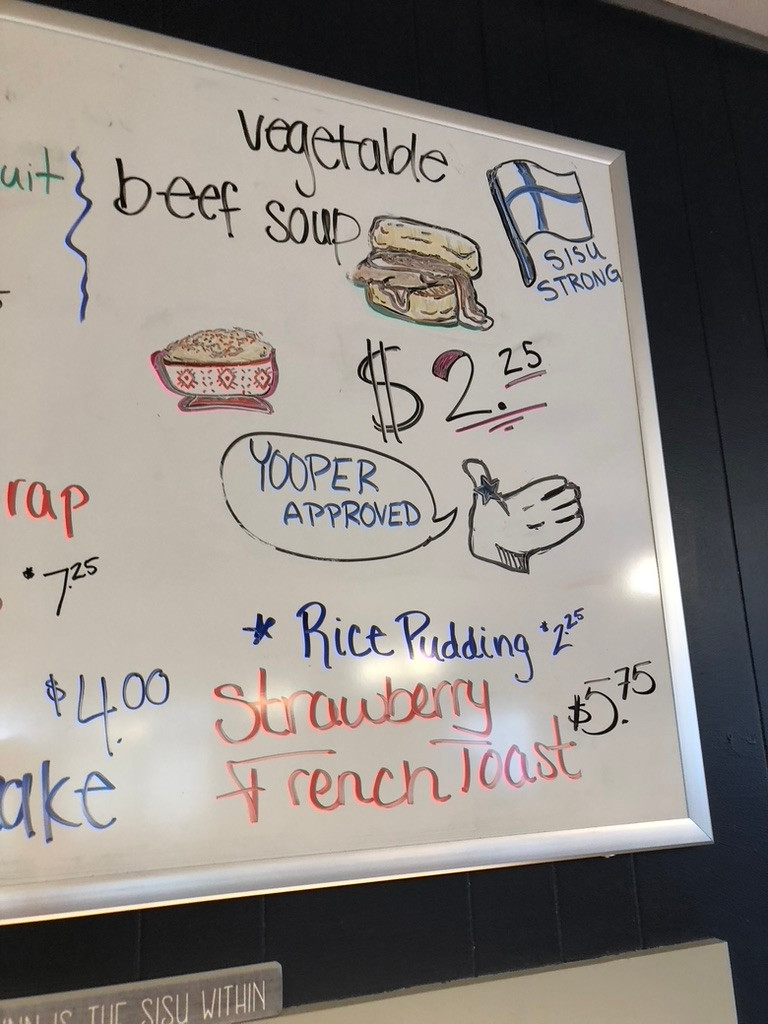 vegetable
beef soup
SISU
STRONG
$2.25
YOOPER
APPROVED
$7.25
* Rice Pudding $2.25
$4.00
Strawberry
French Toast $5.75
IS THE SISU WITHIN